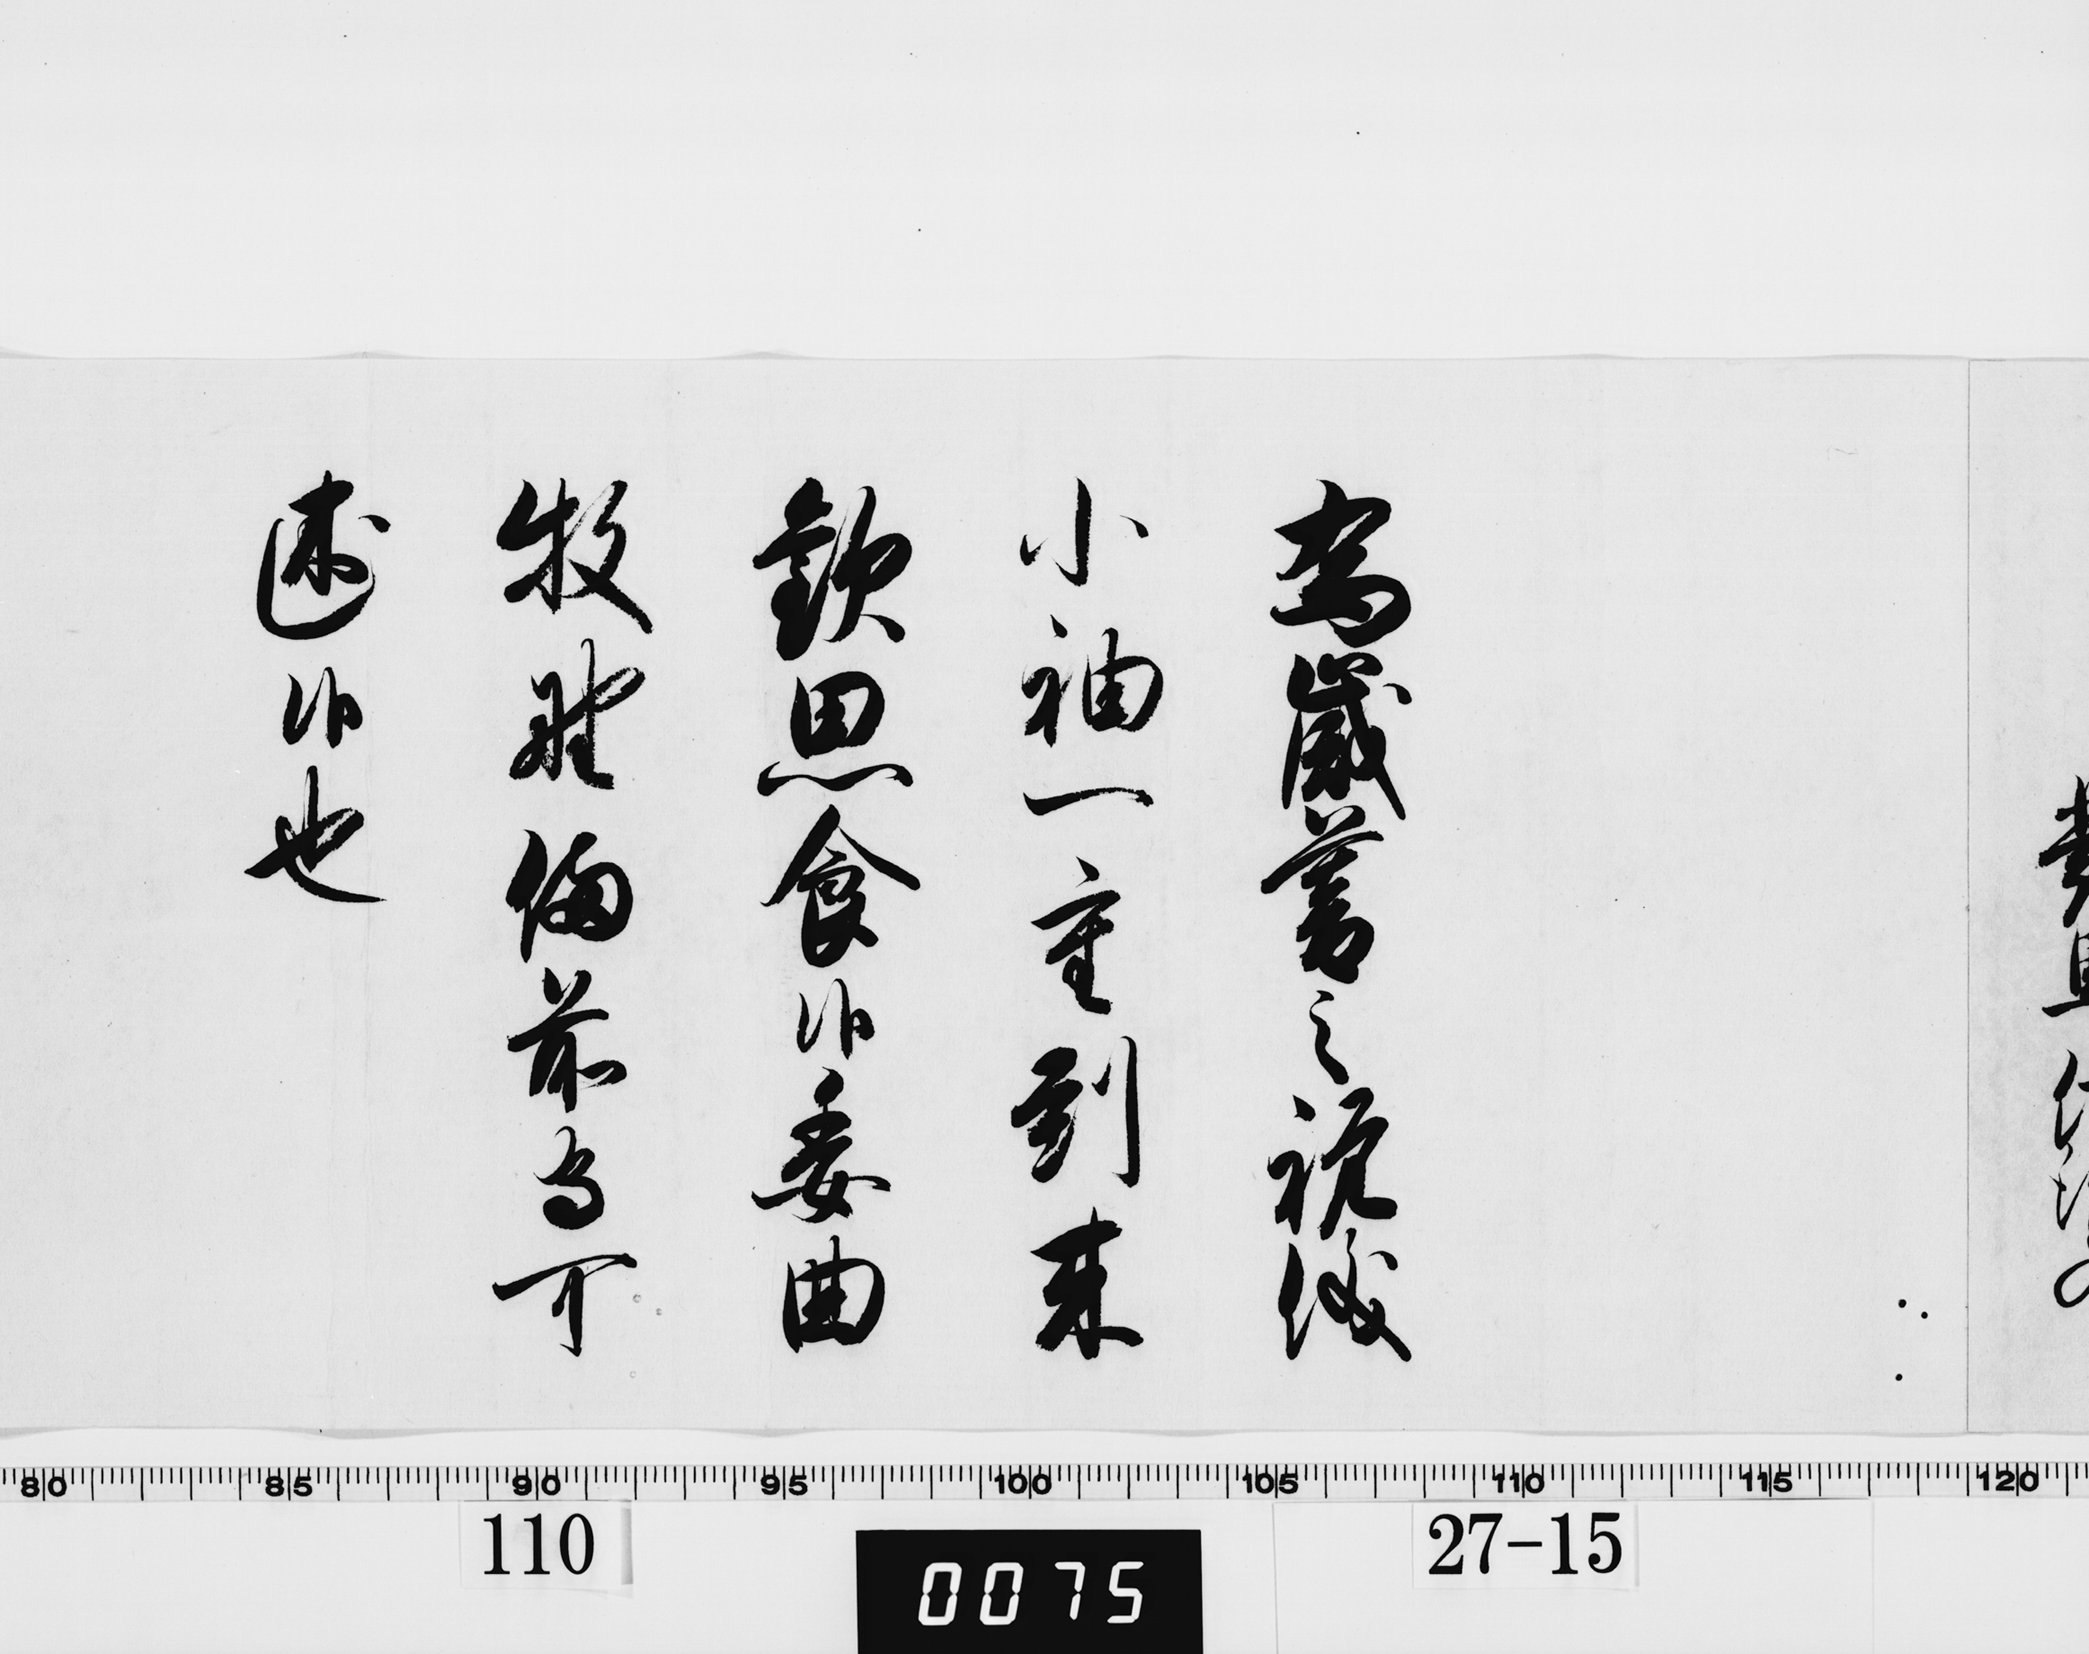 為歳暮之祝儀
小袖一重到来
歓思食候委曲
牧野備前守可
述候也
80 85 90 95 100 105 110 115 120
110
0075
27-15